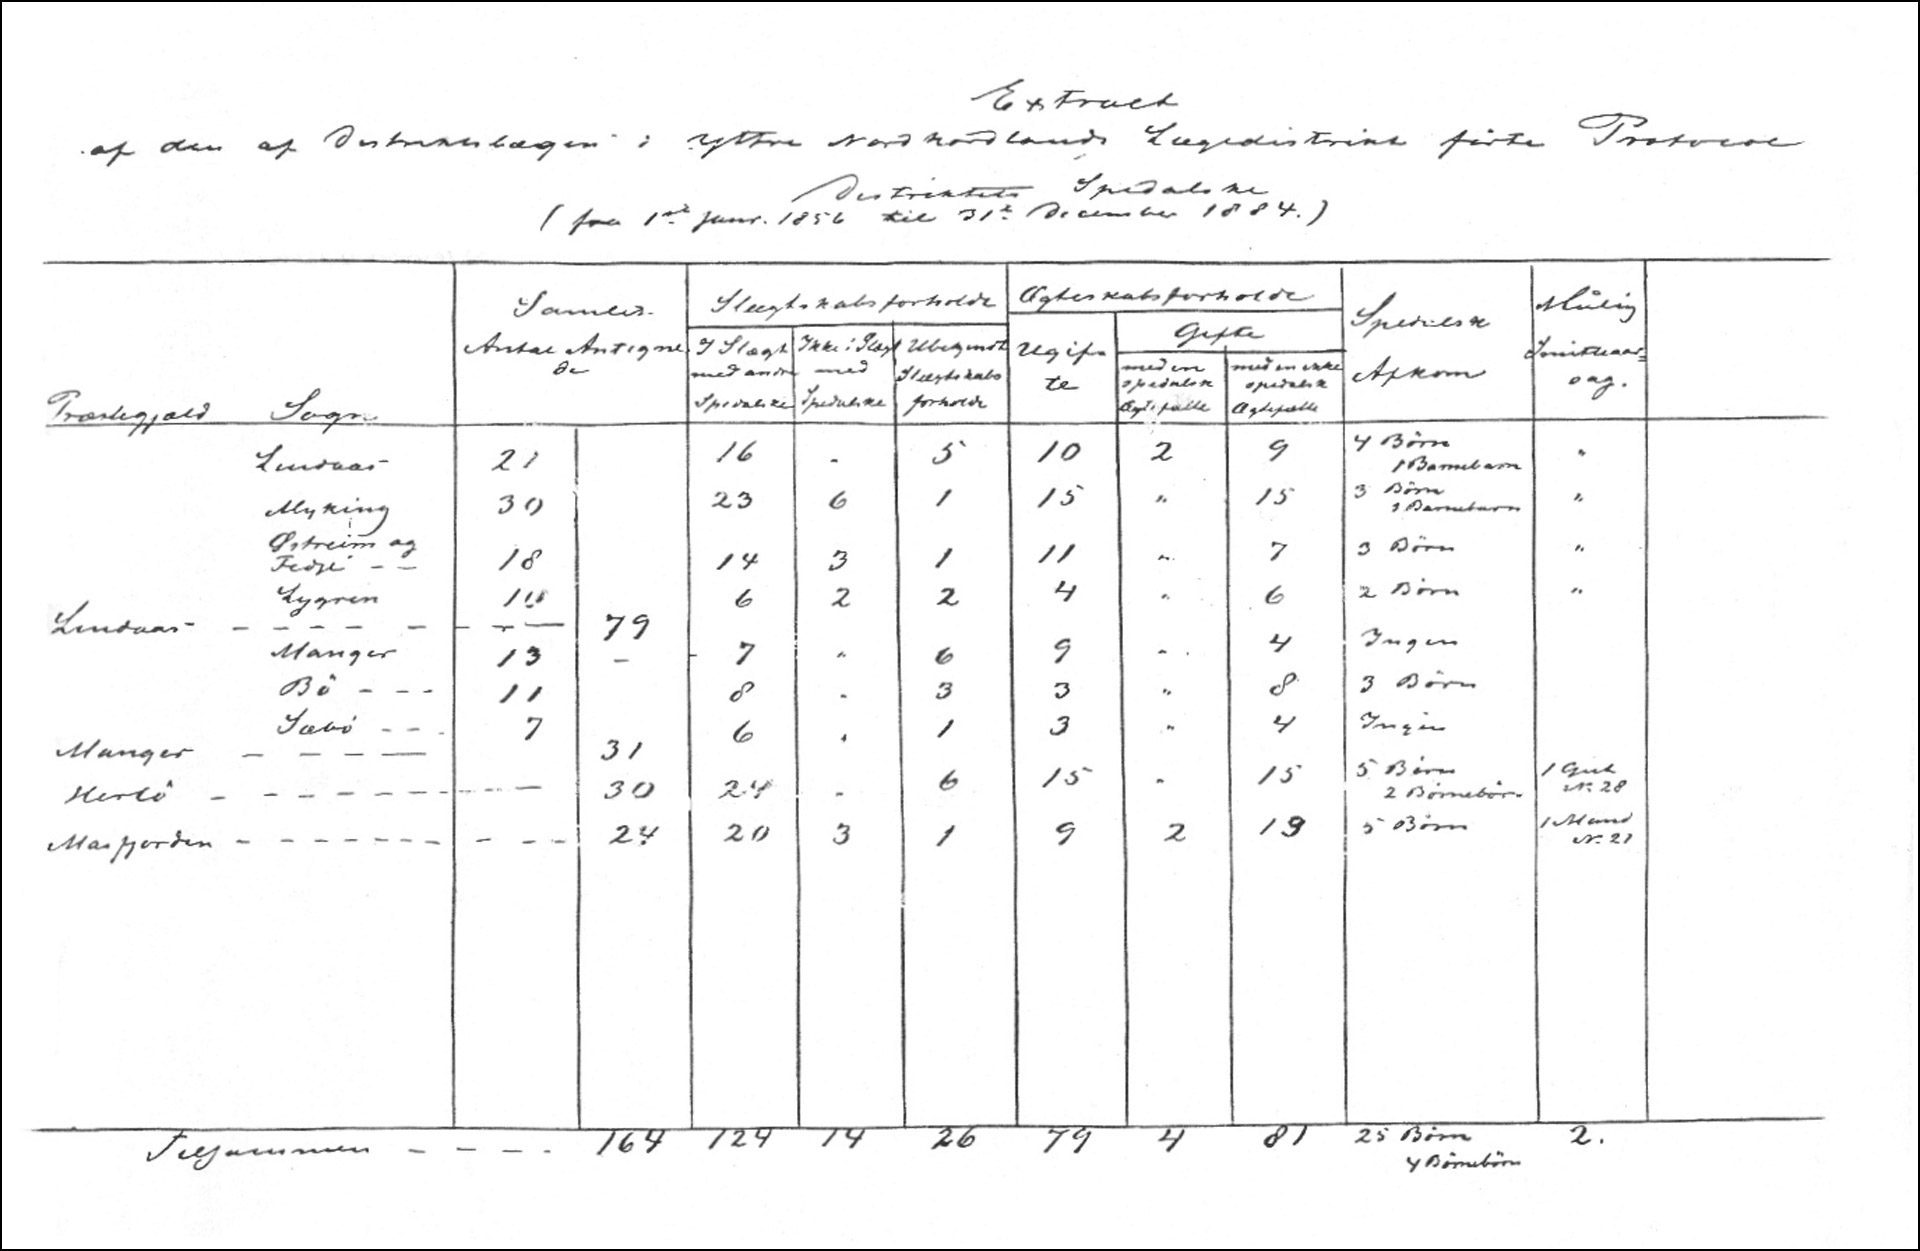 Extract
af den af Distriktslægen i yttre Nordhordlands Lægedistrikt förte Protocol
Distriktets Spedalske
( fra 1ste Janr. 1856 til 31te December 1884. )
Samlede Antal Antegnede
Slægtskabsforholde
Ægteskabsforholde
Spedalsk Afkom
Mulig
I Slægt med andre Spedalske
Ikke i Slægt med Spedalske
Ubekjendt Slægtskabsforholde
Ugifte
Gifte
med en spedalsk Ægtefælle
med en ikke spedalsk Ægtefælle
Præstegjæld Sogn
Lindaas 21 16 . 5 10 2 9 4 Børn 1 Barnebarn "
Myking 30 23 6 1 15 " 15 3 Børn 1 Barnebarn "
Østreim og
Fedje - - 18 14 3 1 11 " 7 3 Børn "
Lygren 10 6 2 2 4 " 6 2 Børn "
Lindaas - - - - - - - - - 79
Manger 13 - 7 " 6 9 " 4 Ingen
Bö - - - 11 8 . 3 3 " 8 3 Børn
Sæbö - - - 7 6 . 1 3 " 4 Ingen
Manger - - - - - 31
Herlö - - - - - - - - - 30 24 . 6 15 " 15 5 Børn 2 Børnebörn 1 Gut N. 28
Masfjorden - - - - - - - - - - 24 20 3 1 9 2 13 5 Børn 1 Mand N. 21
Tilsammen - - - - 164 124 14 26 79 4 81 25 Børn 2.
4 Børnebörn